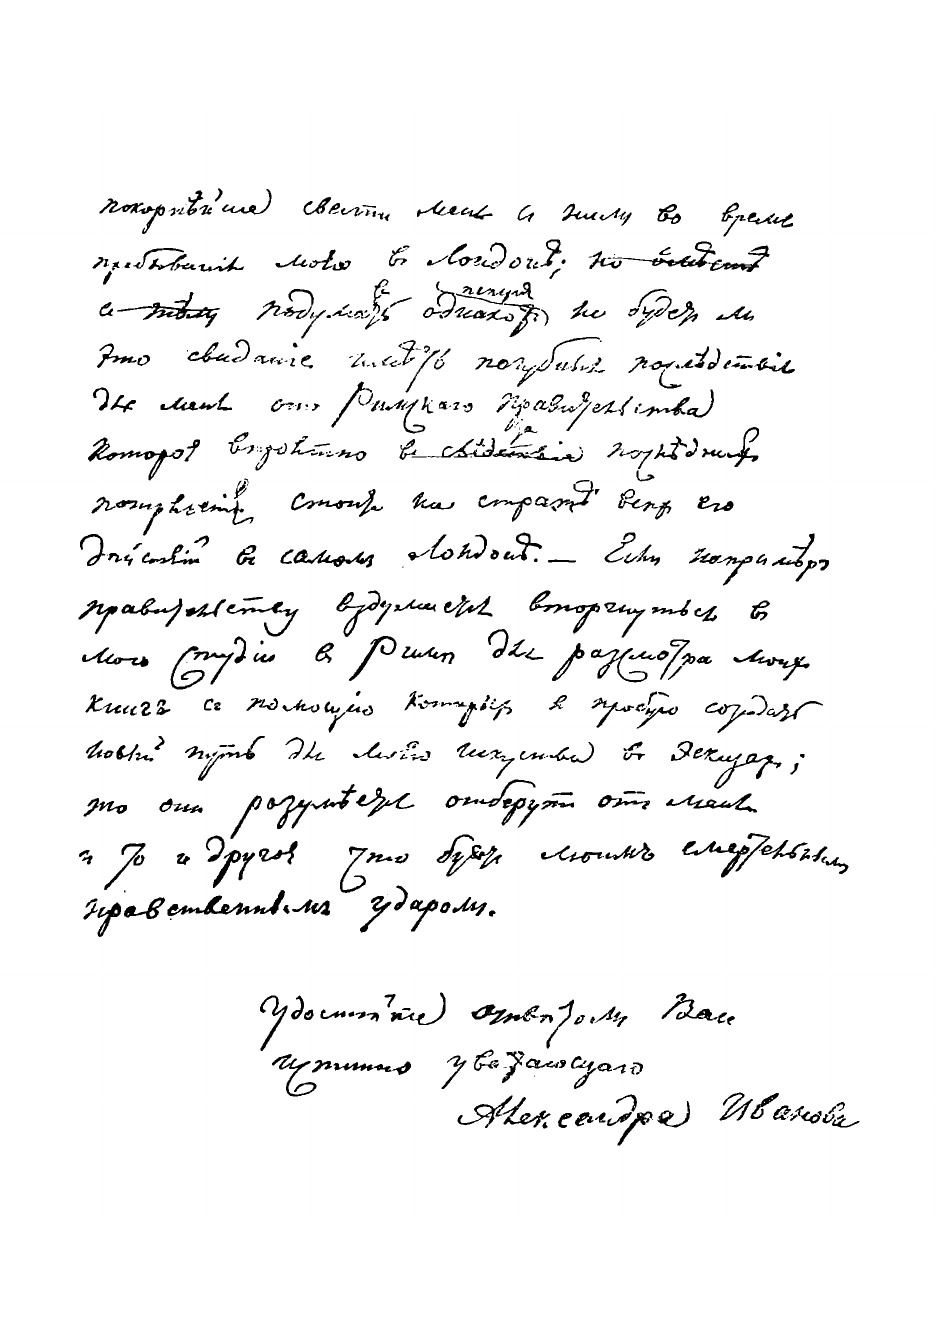 покорнѣйше свести меня съ нимъ во время
пребыванія моего в Лондонѣ; но вмѣстѣ
съ тѣмъ подумать однако не будетъ ли
это свиданіе имѣть пагубныя послѣдствія
для меня отъ Римскаго правительства
которое вѣроятно в слѣдствіе послѣднихъ
стоитъ на стражѣ всѣхъ его
дѣйствій въ самомъ Лондонѣ. — Если напримѣръ
правительству вздумается вторгнуться в
мою студію в Римѣ для разсмотра моихъ
книгъ съ помощію которыхъ я пробую создать
новый путь для моего искуства въ эскизахъ;
то они разумѣется отберутъ отъ меня
и то и другое что будетъ моимъ смертельнымъ
нравственнымъ ударомъ.
Удостойте отвѣтомъ Вас
истинно уважающаго
Александра Иванова